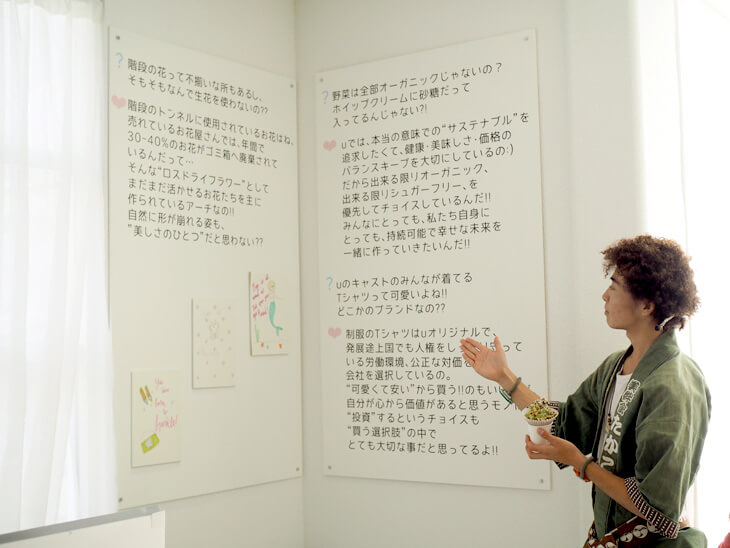 ?
階段の花って不揃いな所もあるし、
そもそもなんで生花を使わないの??
階段のトンネルに使用されているお花はね、
売れているお花屋さんでは、年間で
30~40%のお花がゴミ箱へ廃棄されて
いるんだって…
そんな“ロスドライフラワー”として
まだまだ活かせるお花たちを主に
作られているアーチなの!!
自然に形が崩れる姿も、
“美しさのひとつ”だと思わない??
?
野菜は全部オーガニックじゃないの？
ホイップクリームに砂糖だって
入ってるんじゃない?!
uでは、本当の意味での“サステナブル”を
追求したくて、健康・美味しさ・価格の
バランスキープを大切にしているの:)
だから出来る限りオーガニック、
出来る限りシュガーフリー、を
優先してチョイスしているんだ!!
みんなにとっても、私たち自身に
とっても、持続可能で幸せな未来を
一緒に作っていきたいんだ!!
?
uのキャストのみんなが着てる
Tシャツって可愛いよね!!
どこかのブランドなの??
制服のTシャツはuオリジナルで、
発展途上国でも人権をし
って
いる労働環境、公正な対価を
会社を選択しているの。
“可愛くて安い”から買う!!のもいい
自分が心から価値があると思うモノ
“投資”するというチョイスも
“買う選択肢”の中で
とても大切な事だと思ってるよ!!